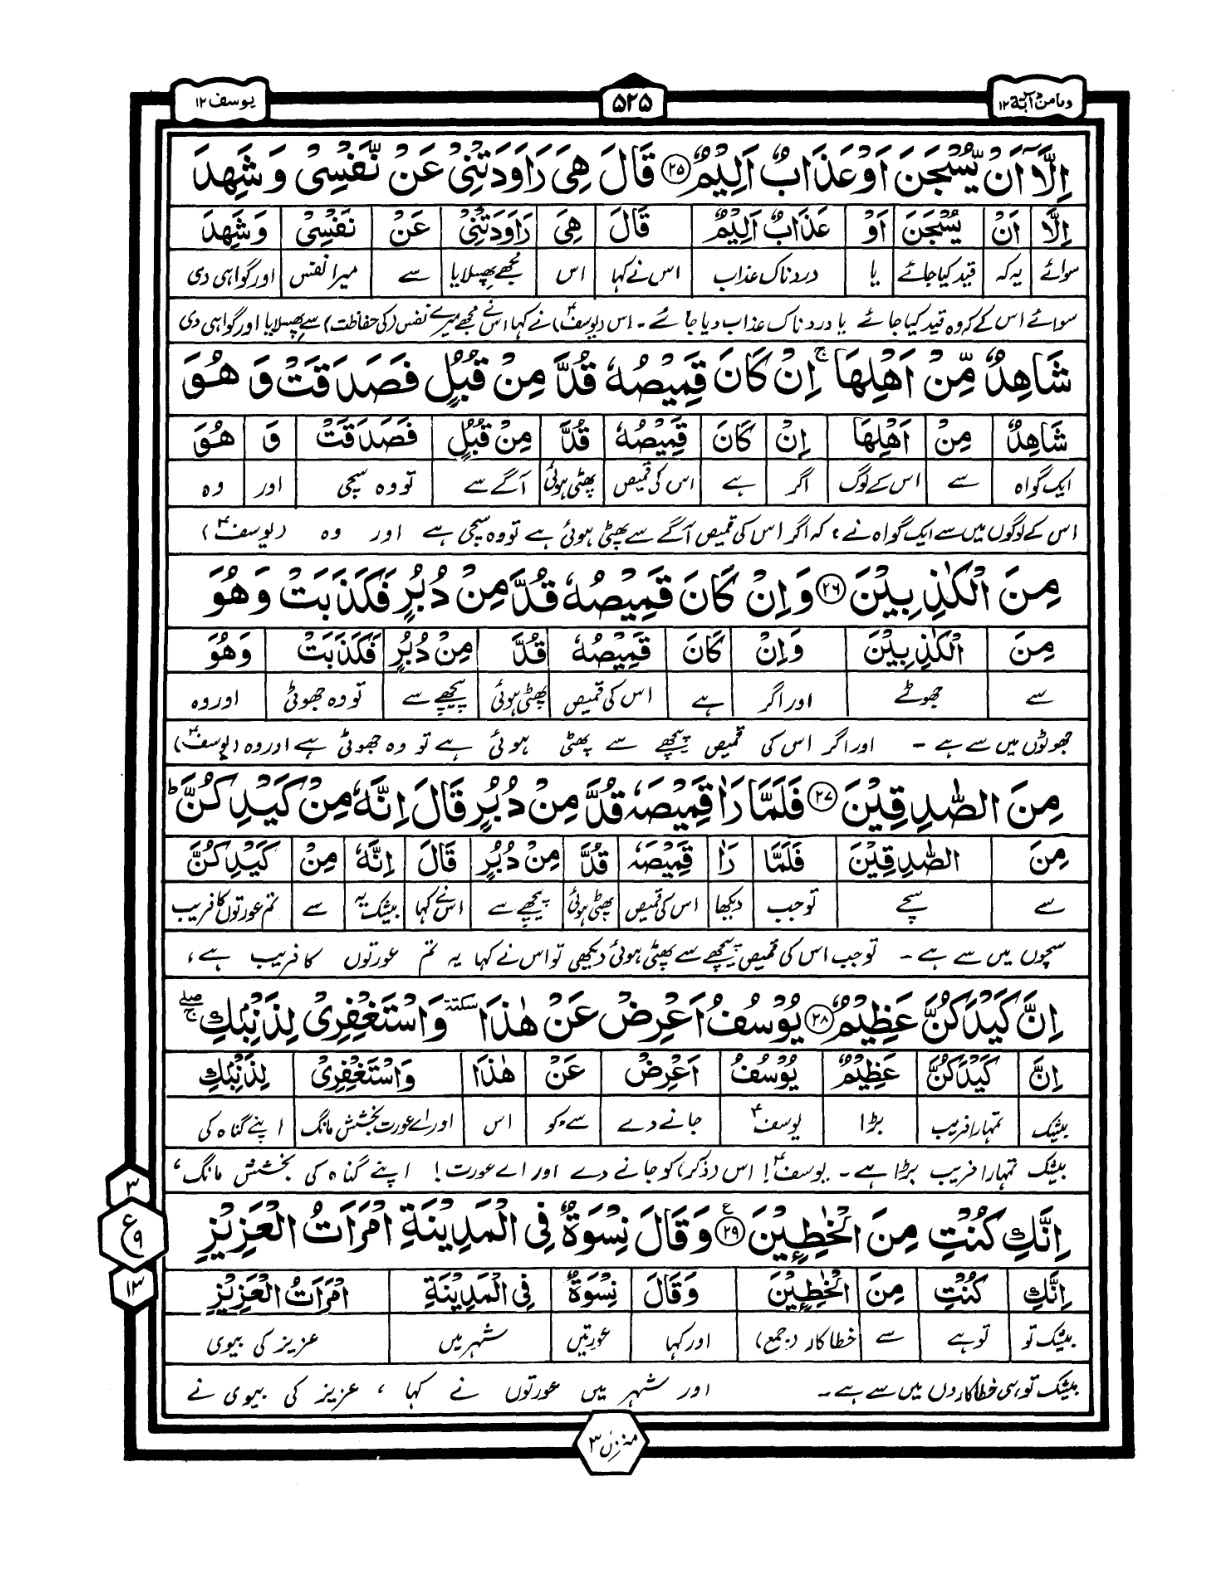 وما من دآبة ١٢
۵۲۵
یوسف ١٢
اِلَّاۤ اَنۡ یُّسۡجَنَ اَوۡ عَذَابٌ اَلِیۡمٌ ﴿۲۵﴾ قَالَ هِیَ رَاوَدَتۡنِیۡ عَنۡ نَّفۡسِیۡ وَ شَهِدَ
اِلَّا اَنۡ یُّسۡجَنَ اَوۡ عَذَابٌ اَلِیۡمٌ قَالَ هِیَ رَاوَدَتۡنِیۡ عَنۡ نَفۡسِیۡ وَ شَهِدَ
سوائے یہ کہ قید کیا جائے یا دردناک عذاب اس نے کہا اس مجھے پھسلایا سے میرا نفس اور گواہی دی
سوائے اس کے کہ وہ قید کیا جائے یا دردناک عذاب دیا جائے ۔ اس (یوسفؑ) نے کہا اس نے مجھے میرے نفس (کی حفاظت) سے پھسلایا اور گواہی دی
شَاهِدٌ مِّنۡ اَهۡلِهَا ۚ اِنۡ كَانَ قَمِیۡصُهٗ قُدَّ مِنۡ قُبُلٍ فَصَدَقَتۡ وَ هُوَ
شَاهِدٌ مِنۡ اَهۡلِهَا اِنۡ كَانَ قَمِیۡصُهٗ قُدَّ مِنۡ قُبُلٍ فَصَدَقَتۡ وَ هُوَ
ایک گواہ سے اس کے لوگ اگر ہے اس کی قمیص پھٹی ہوئی آگے سے تو وہ سچی اور وہ
اس کے لوگوں میں سے ایک گواہ نے، کہ اگر اس کی قمیص آگے سے پھٹی ہوئی ہے تو وہ سچی ہے اور وہ (یوسفؑ)
مِنَ الۡكٰذِبِیۡنَ ﴿۲۶﴾ وَ اِنۡ كَانَ قَمِیۡصُهٗ قُدَّ مِنۡ دُبُرٍ فَكَذَبَتۡ وَ هُوَ
مِنَ الۡكٰذِبِیۡنَ وَ اِنۡ كَانَ قَمِیۡصُهٗ قُدَّ مِنۡ دُبُرٍ فَكَذَبَتۡ وَ هُوَ
سے جھوٹے اور اگر ہے اس کی قمیص پھٹی ہوئی پیچھے سے تو وہ جھوٹی اور وہ
جھوٹوں میں سے ہے ۔ اور اگر اس کی قمیص پیچھے سے پھٹی ہوئی ہے تو وہ جھوٹی ہے اور وہ (یوسفؑ)
مِنَ الصّٰدِقِیۡنَ ﴿۲۷﴾ فَلَمَّا رَاٰ قَمِیۡصَهٗ قُدَّ مِنۡ دُبُرٍ قَالَ اِنَّهٗ مِنۡ كَیۡدِكُنَّ ؕ
مِنَ الصّٰدِقِیۡنَ فَلَمَّا رَاٰ قَمِیۡصَهٗ قُدَّ مِنۡ دُبُرٍ قَالَ اِنَّهٗ مِنۡ كَیۡدِكُنَّ
سے سچے تو جب دیکھا اس کی قمیص پھٹی ہوئی پیچھے سے اس نے کہا بیشک یہ سے تم عورتوں کا فریب
سچوں میں سے ہے ۔ تو جب اس کی قمیص پیچھے سے پھٹی ہوئی دیکھی تو اس نے کہا یہ تم عورتوں کا فریب ہے،
اِنَّ كَیۡدَكُنَّ عَظِیۡمٌ ﴿۲۸﴾ یُوۡسُفُ اَعۡرِضۡ عَنۡ هٰذَا سكتة وَ اسۡتَغۡفِرِیۡ لِذَنۡۢبِكِ ۚۖ
اِنَّ كَیۡدَكُنَّ عَظِیۡمٌ یُوۡسُفُ اَعۡرِضۡ عَنۡ هٰذَا وَ اسۡتَغۡفِرِیۡ لِذَنۡۢبِكِ
بیشک تمہارا فریب بڑا یوسفؑ جانے دے سے ۔ کو اس اور اے عورت بخشش مانگ اپنے گناہ کی
بیشک تمہارا فریب بڑا ہے ۔ یوسفؑ! اس (ذکر) کو جانے دے اور اے عورت! اپنے گناہ کی بخشش مانگ،
اِنَّكِ كُنۡتِ مِنَ الۡخٰطِـِٕیۡنَ ﴿۲۹﴾ وَ قَالَ نِسۡوَةٌ فِی الۡمَدِیۡنَةِ امۡرَاَتُ الۡعَزِیۡزِ
اِنَّكِ كُنۡتِ مِنَ الۡخٰطِـِٕیۡنَ وَ قَالَ نِسۡوَةٌ فِی الۡمَدِیۡنَةِ امۡرَاَتُ الۡعَزِیۡزِ
بیشک تو تو ہے سے خطا کار (جمع) اور کہا عورتیں شہر میں عزیز کی بیوی
بیشک تو ہی خطاکاروں میں سے ہے ۔ اور شہر میں عورتوں نے کہا، عزیز کی بیوی نے
٣
ع ٩
١٣
منزل ٣